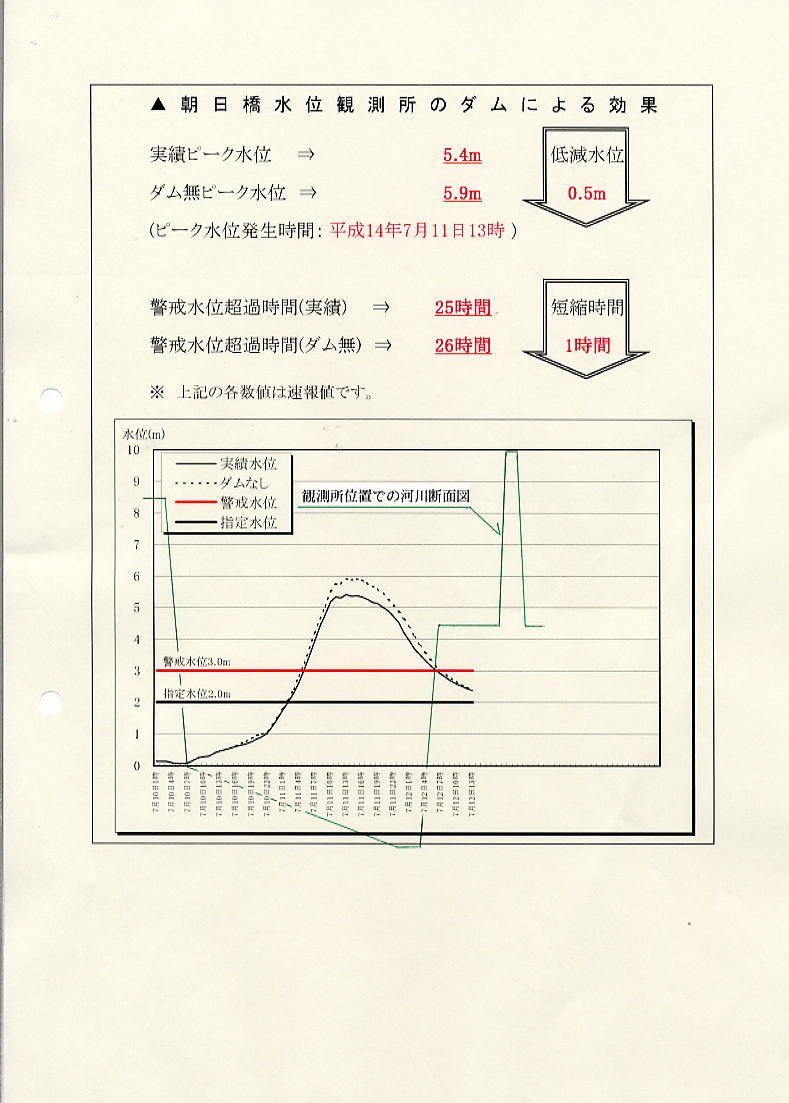 ▲朝日橋水位観測所のダムによる効果
実績ピーク水位 ⇒ 5.4m
低減水位
ダム無ピーク水位 ⇒ 5.9m
0.5m
(ピーク水位発生時間: 平成14年7月11日13時 )
警戒水位超過時間(実績) ⇒ 25時間
短縮時間
警戒水位超過時間(ダム無) ⇒ 26時間
1時間
※ 上記の各数値は速報値です。
水位(m)
10
9
8
7
6
5
4
3
2
1
0
実績水位
ダムなし
警戒水位
指定水位
観測所位置での河川断面図
警戒水位3.0m
指定水位2.0m
7月10日1時
7月10日4時
7月10日7時
7月10日10時
7月10日13時
7月10日16時
7月10日19時
7月10日22時
7月11日1時
7月11日4時
7月11日7時
7月11日10時
7月11日13時
7月11日16時
7月11日19時
7月11日22時
7月12日1時
7月12日4時
7月12日7時
7月12日10時
7月12日13時